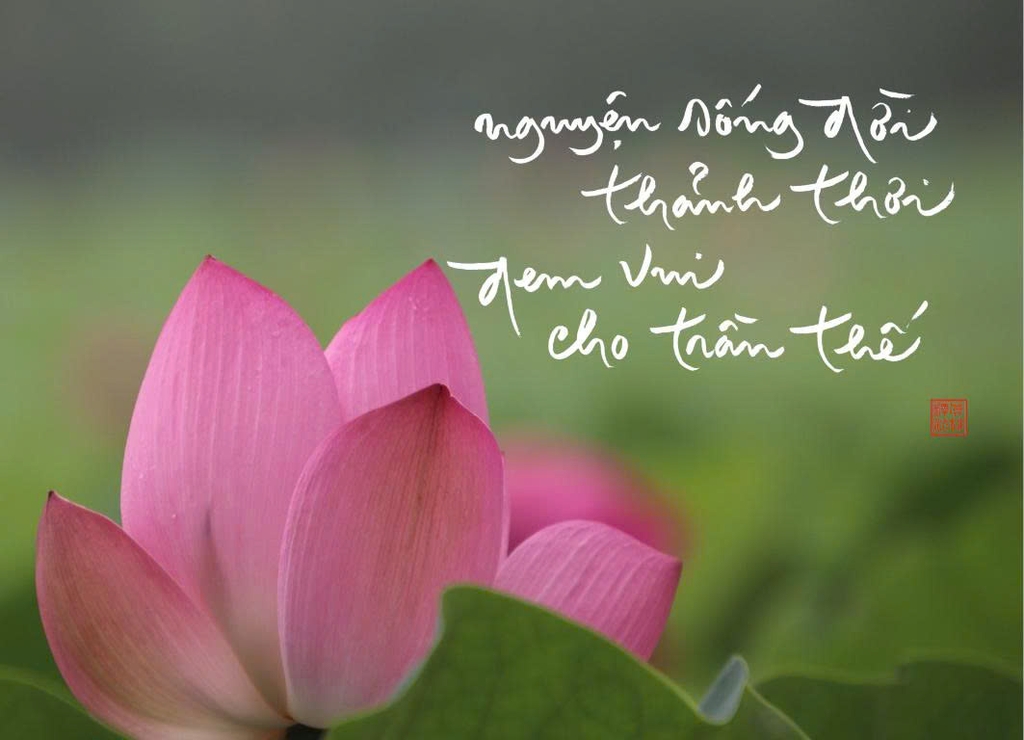 nguyện sống đời
thảnh thơi
đem vui
cho trần thế